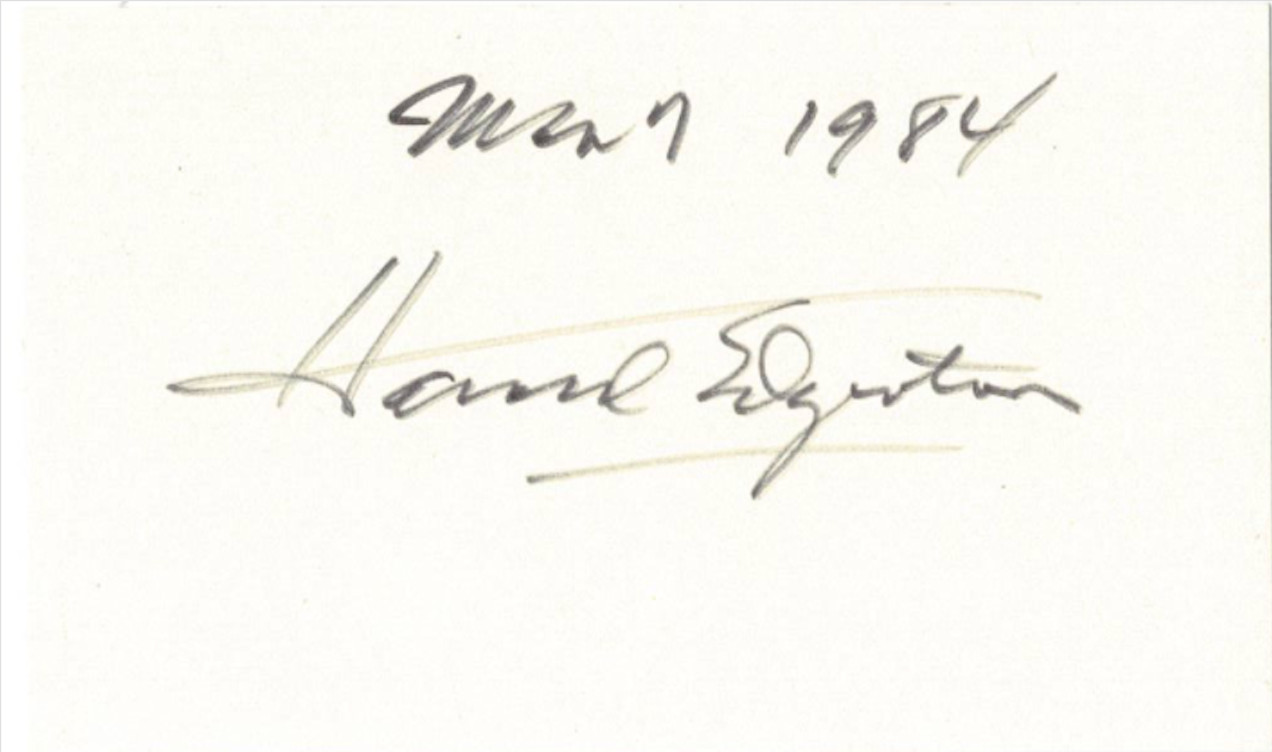 Mar 7 1984
Harold Edgerton